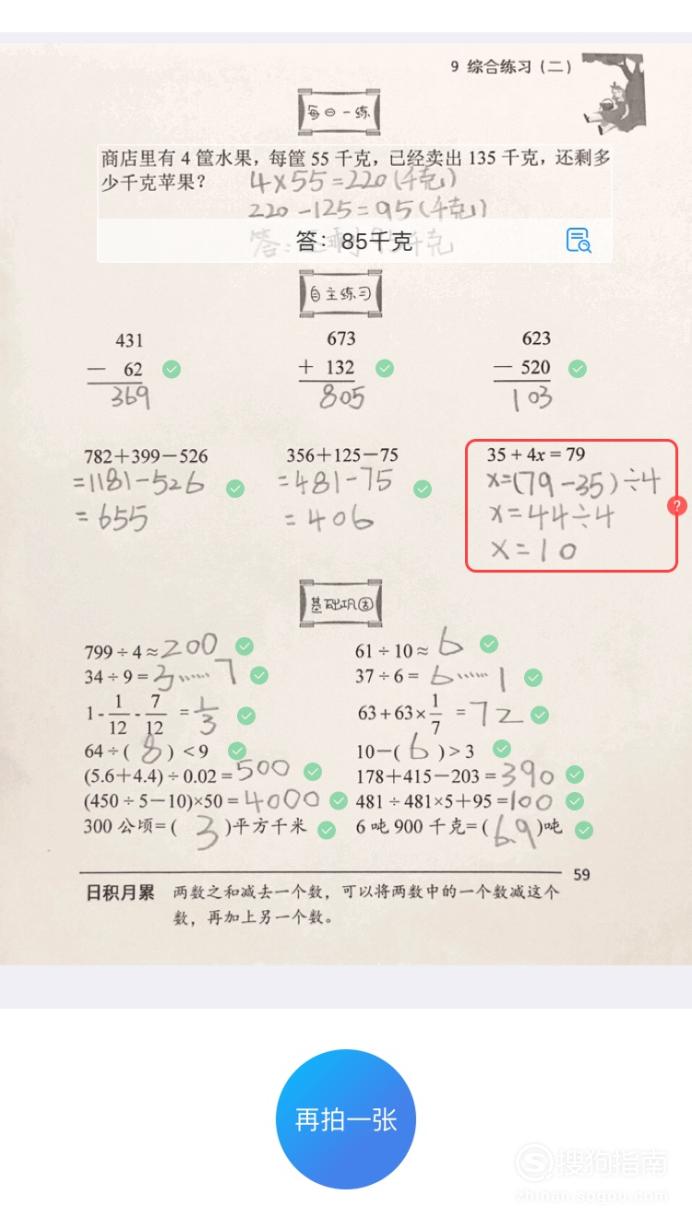 9 综合练习（二）
每日一练
商店里有 4 筐水果，每筐 55 千克，已经卖出 135 千克，还剩多
少千克苹果？ 4×55=220(千克)
220-125=95(千克)
答：85千克
自主练习
431 673 623
— 62 + 132 — 520
369 805 103
782＋399－526 356＋125－75 35 + 4x = 79
=1181-526 =481-75 x=(79-35)÷4
=655 =406 x=44÷4
x=10
?
基础巩固
799 ÷ 4 ≈ 200 61 ÷ 10 ≈ 6
34 ÷ 9 = 3……7 37 ÷ 6 = 6……1
1 - 1/12 - 7/12 = 1/3 63 + 63 × 1/7 = 72
64 ÷ ( 8 ) < 9 10－( 6 ) > 3
(5.6＋4.4) ÷ 0.02 = 500 178＋415－203 = 390
(450 ÷ 5－10)×50 = 4000 481 ÷ 481×5＋95 =100
300 公顷= ( 3 )平方千米 6 吨 900 千克= ( 6.9 )吨
59
日积月累 两数之和减去一个数，可以将两数中的一个数减这个
数，再加上另一个数。
再拍一张
搜狗指南
zhinan.sogou.com